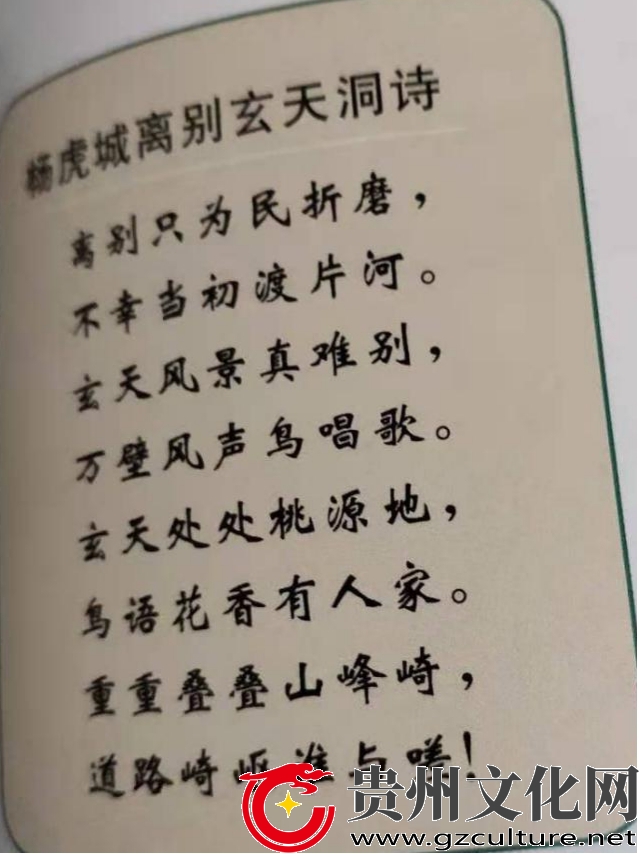 杨虎城离别玄天洞诗
离别只为民折磨，
不幸当初渡片河。
玄天风景真难别，
万壁风声鸟唱歌。
玄天处处桃源地，
鸟语花香有人家。
重重叠叠山峰崎，
道路崎岖谁与嗟！
贵州文化网
www.gzculture.net